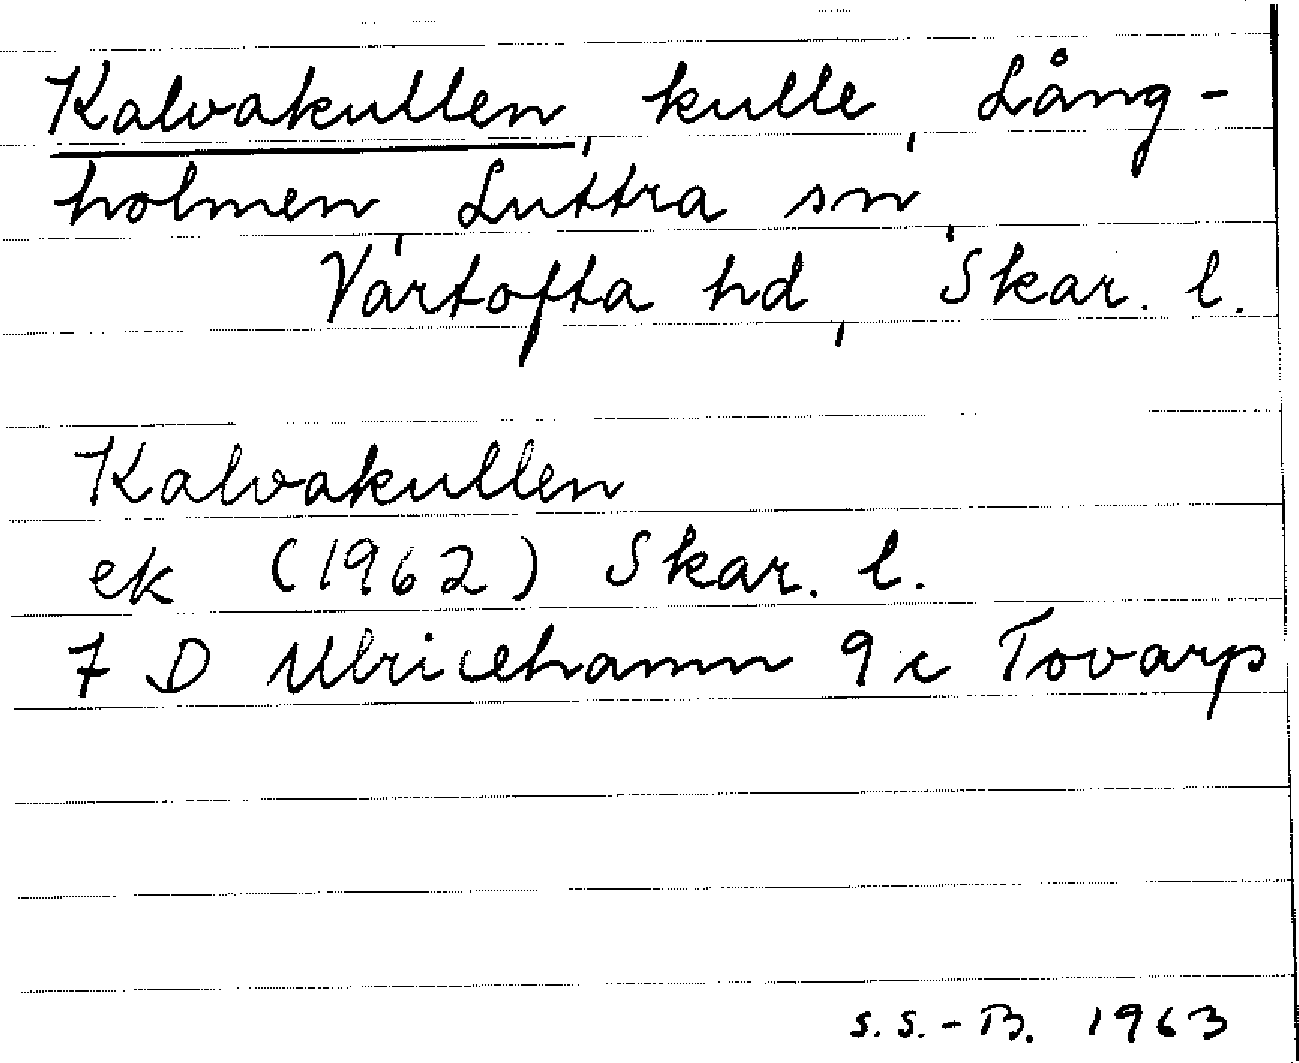 Kalvakullen, kulle, Lång-
holmen, Luttra sn,
Vartofta hd, Skar. l.
Kalvakullen
ek (1962) Skar. l.
7 D Ulricehamn 9 c Tovarp
S.S.-B. 1963